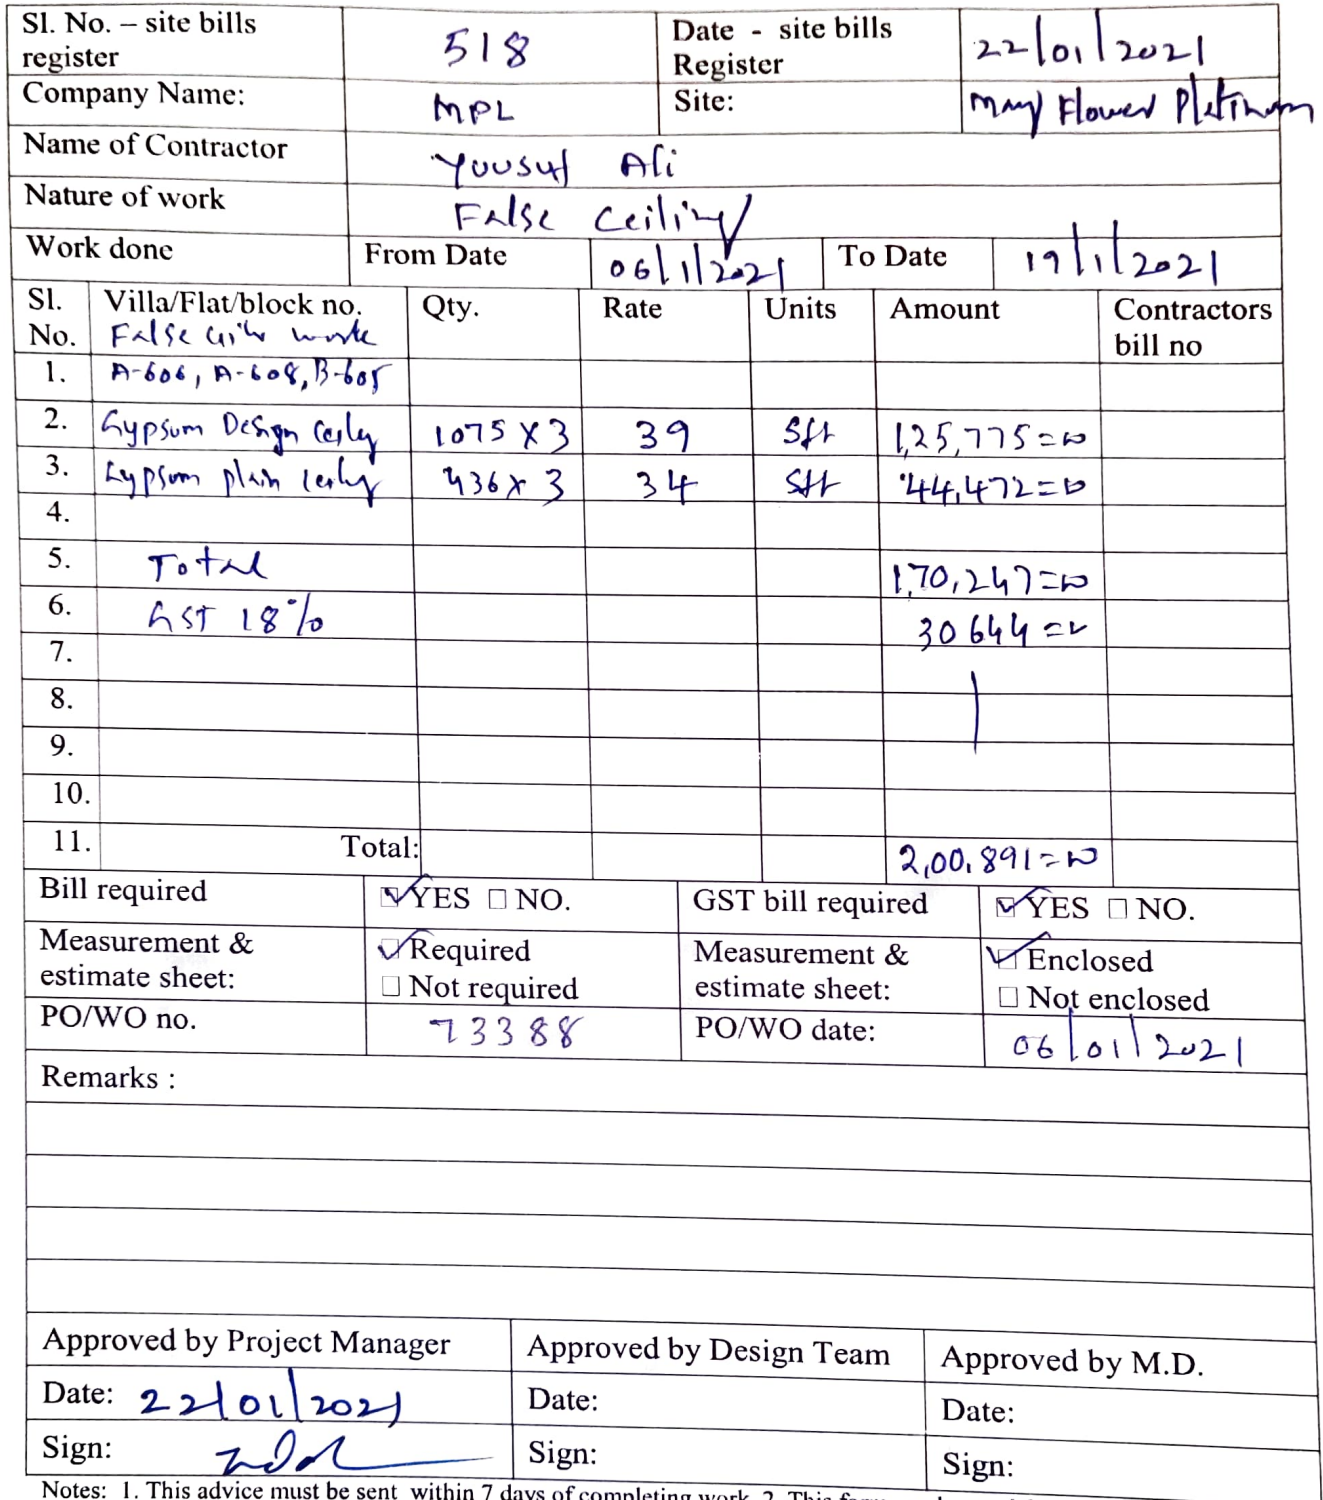 Sl. No. – site bills register 518 Date - site bills Register 22/01/2021
Company Name: MPL Site: May Flower Platinum
Name of Contractor Yousuf Ali
Nature of work False Ceiling
Work done From Date 06/1/2021 To Date 19/1/2021
Sl. No. Villa/Flat/block no. Qty. Rate Units Amount Contractors bill no
False work
1. A-606, A-608, B-605
2. Gypsum Design 1075 X 3 39 Sft 1,25,775=00
3. Gypsum plain 436 X 3 34 Sft 44,472=00
4.
5. Total 1,70,247=00
6. GST 18% 30644=
7.
8.
9.
10.
11. Total: 2,00,891=00
Bill required ☑YES ☐NO. GST bill required ☑YES ☐NO.
Measurement & estimate sheet: ☑Required Measurement & estimate sheet: ☑Enclosed
☐Not required ☐Not enclosed
PO/WO no. 73388 PO/WO date: 06/01/2021
Remarks :
Approved by Project Manager Approved by Design Team Approved by M.D.
Date: 22/01/2021 Date: Date:
Sign: Sign: Sign:
Notes: 1. This advice must be sent within 7 days of completing work. 2. This